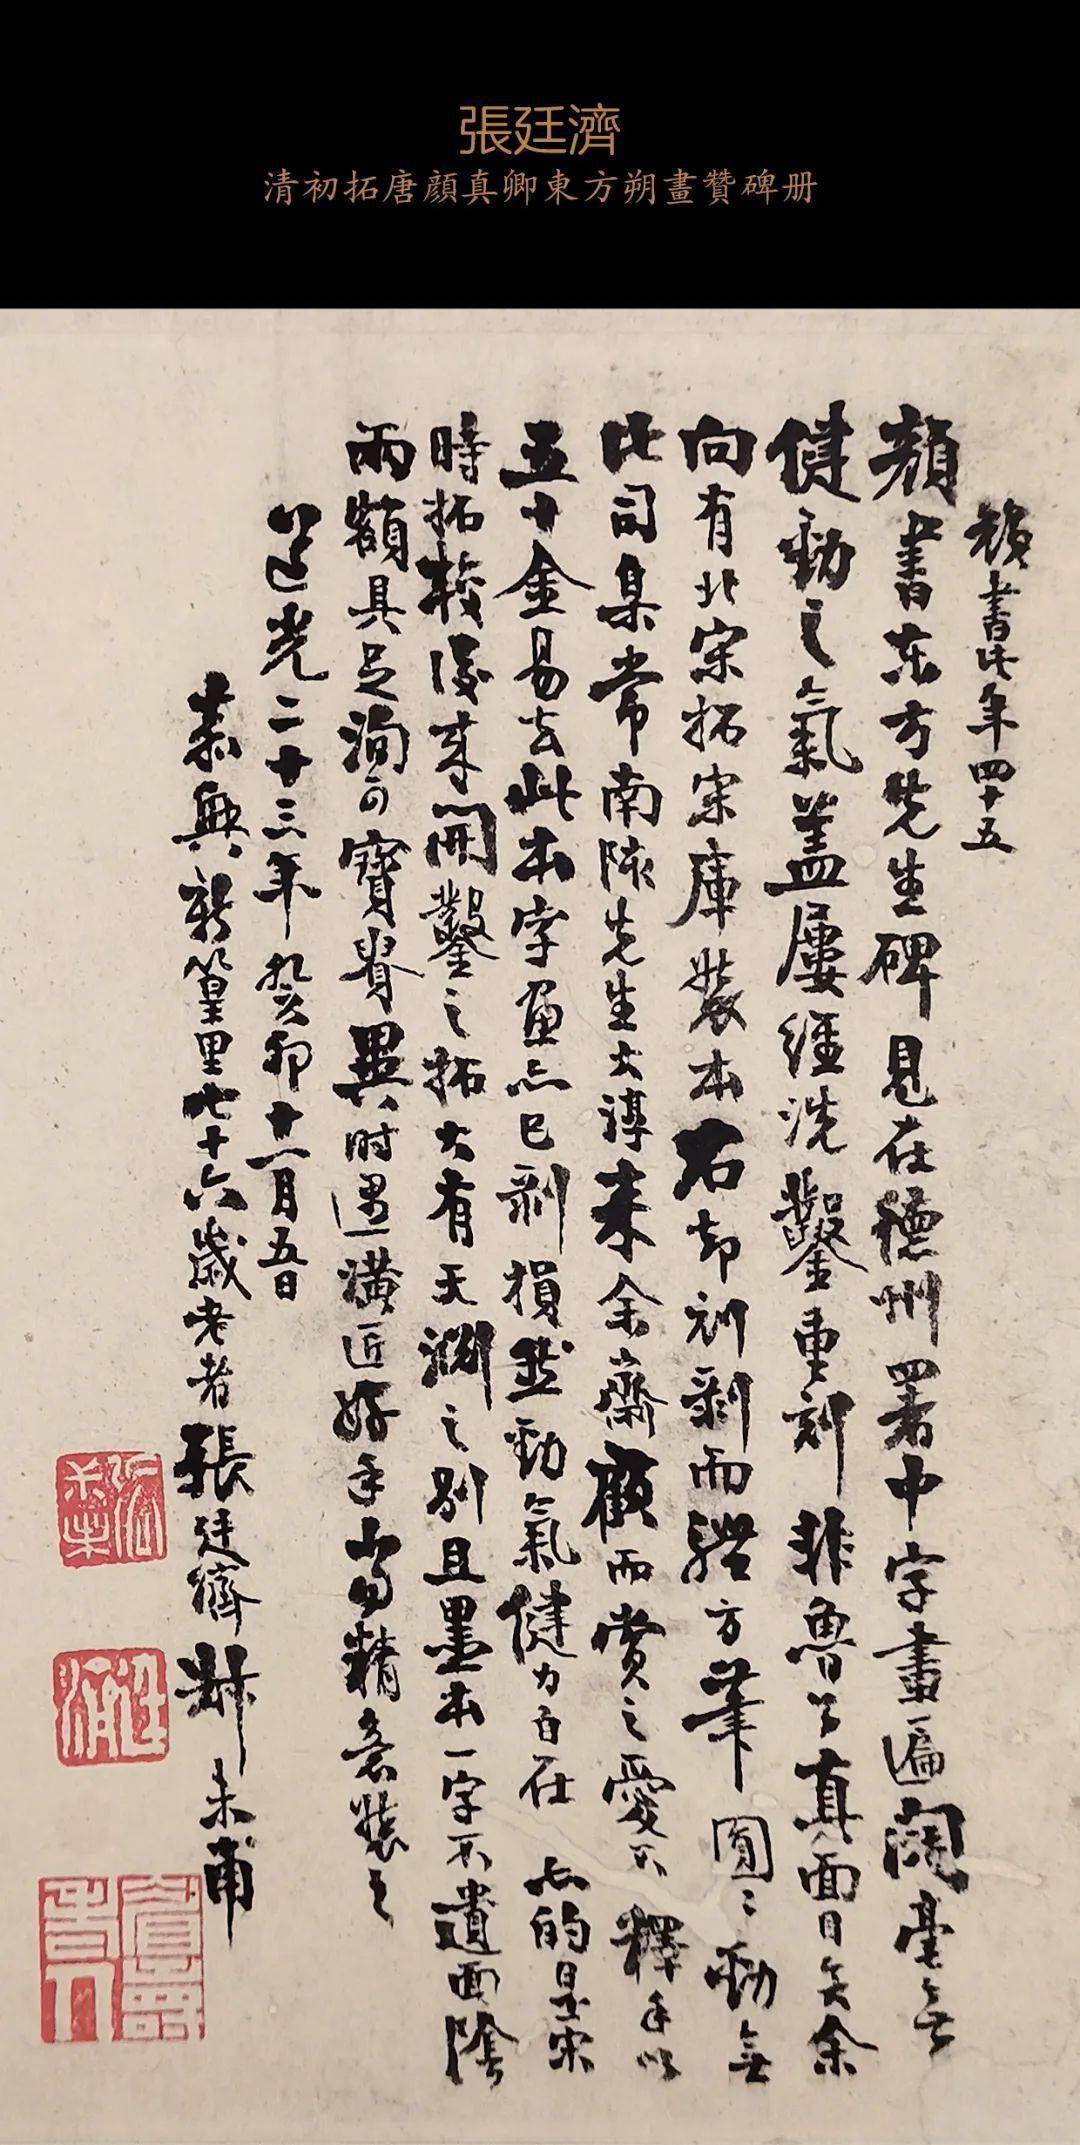 張廷濟
清初拓唐顏真卿東方朔畫贊碑册
顏書此年四十五
顏書東方先生碑見在德州署中字畫遍闊毫無
健勁之氣蓋屢經洗鑿重刻非魯公真面目矣余
向有北宋拓宋庫裝本石却刓剥而體方筆圓二勁無
比司臬常南陔先生大淳來余齋顧而賞之愛不釋手以
五十金易去此本字畫亦已剥損然勁氣健力自在 亦的是宋
時拓較後來開鑿之拓大有天淵之別且墨本一字不遺面陰
兩額具足洵可寶貴異時遇潢匠好手當精意裝之
道光二十三年癸卯十一月五日
嘉興新篁里七十六歲老者張廷濟尗未甫
張廷濟